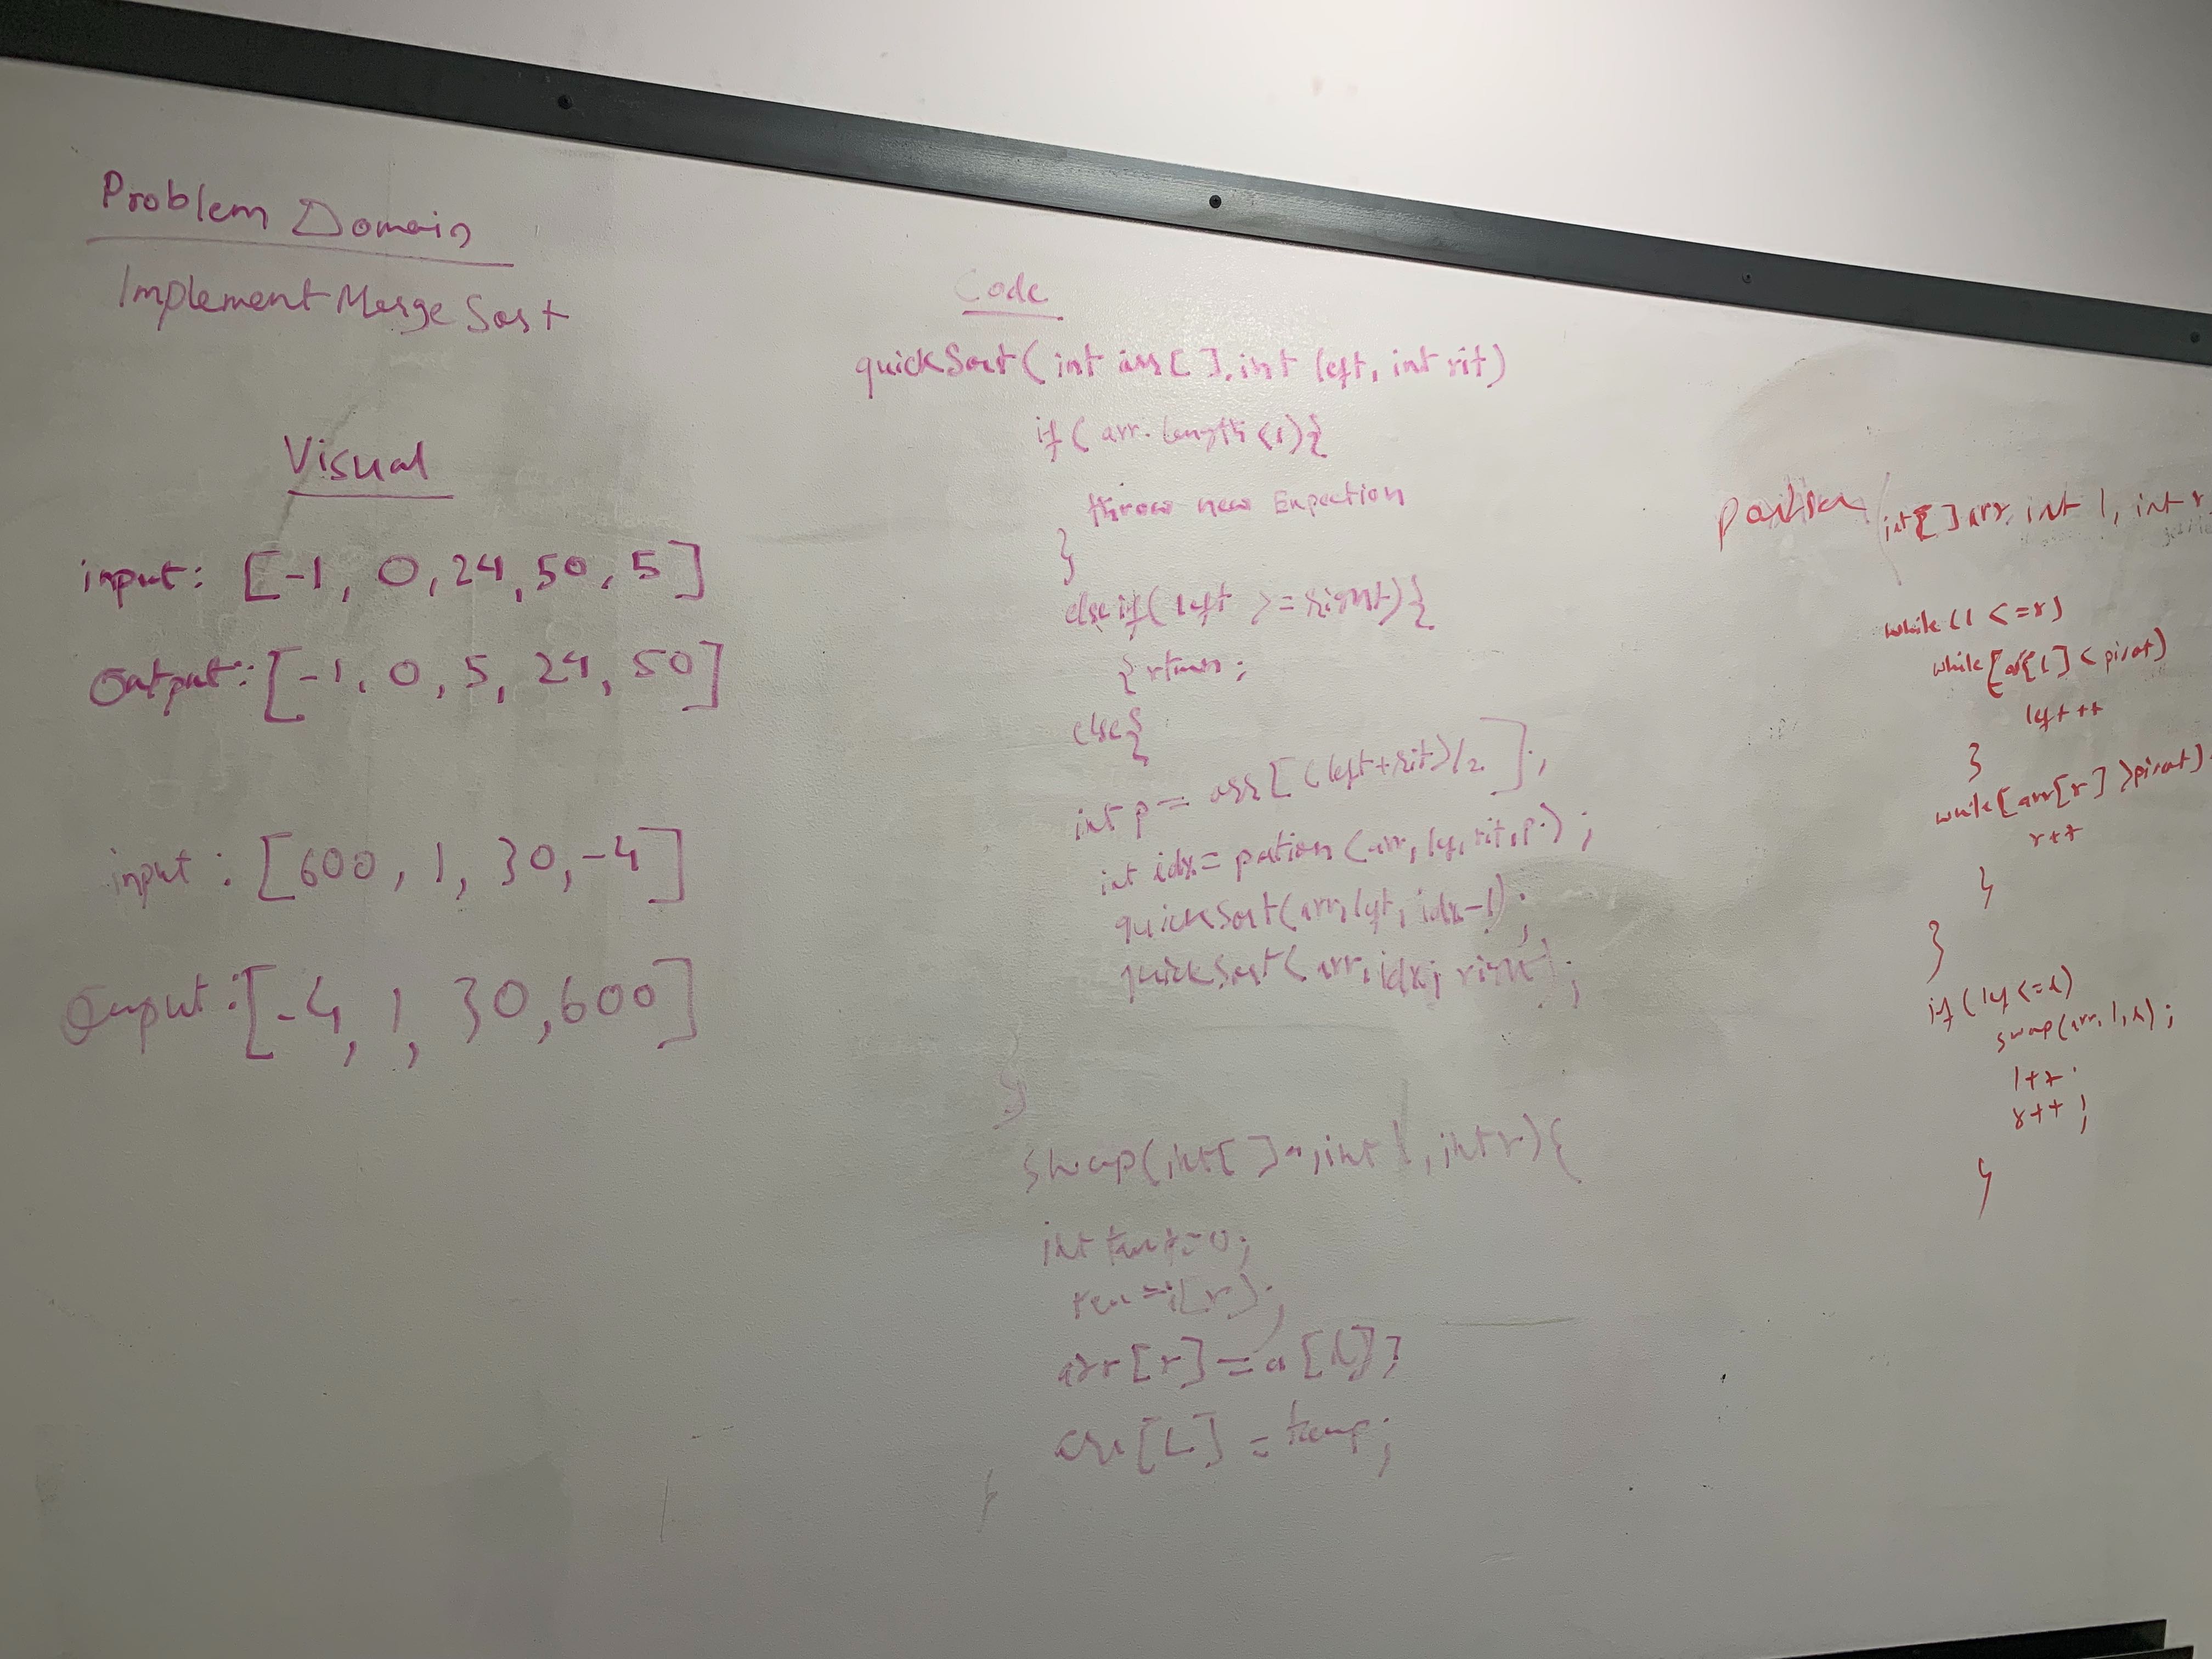 Problem Domain
Implement Merge Sort
Visual
input: [-1, 0, 24, 50, 5]
Output: [-1, 0, 5, 24, 50]
input: [600, 1, 30, -4]
Output: [-4, 1, 30, 600]
Code
quickSort(int arr[], int left, int rit)
if(arr.length<1){
throw new Expection
}
else if(left >= right){
} return;
else{
int p = arr[(left+rit)/2];
int idx = pation(arr, lef, rit, p);
quickSort(arr, left, idx-1);
quickSort(arr, idx, right);
}
swap(int[] a, int l, int r){
int temp=0;
arr[r] = a[l];
arr[L] = temp;
}
partition(int[] arr, int l, int r
while(l <= r)
while[arr[l] < pivot)
left ++
}
while[arr[r] > pivot)
r++
}
}
if(lef <= r)
swap(arr, l, r);
l++
r++;
}